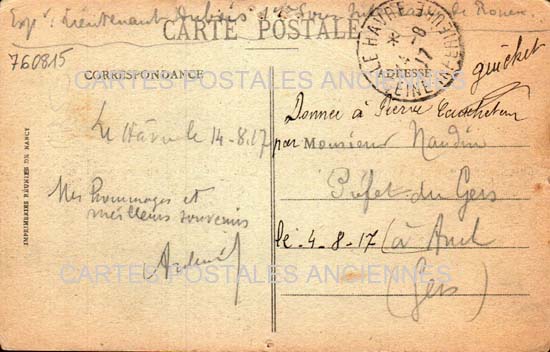 Expr: Lieutenant Dubois 1er Son de Rouen
CARTE POSTALE
760815
CORRESPONDANCE
ADRESSE
LE HAVRE
14 - 8
17
SEINE INFRE
guichet
Le Havre le 14-8.17
Donner à Pierre
par Monsieur Naudin
Mes hommages et
meilleurs souvenirs
Préfet du Gers
le 4-8-17 à Auch
(Gers)
IMPRIMERIES RÉUNIES DE NANCY
CARTES POSTALES ANCIENNES
CARTES POSTALES ANCIENNES